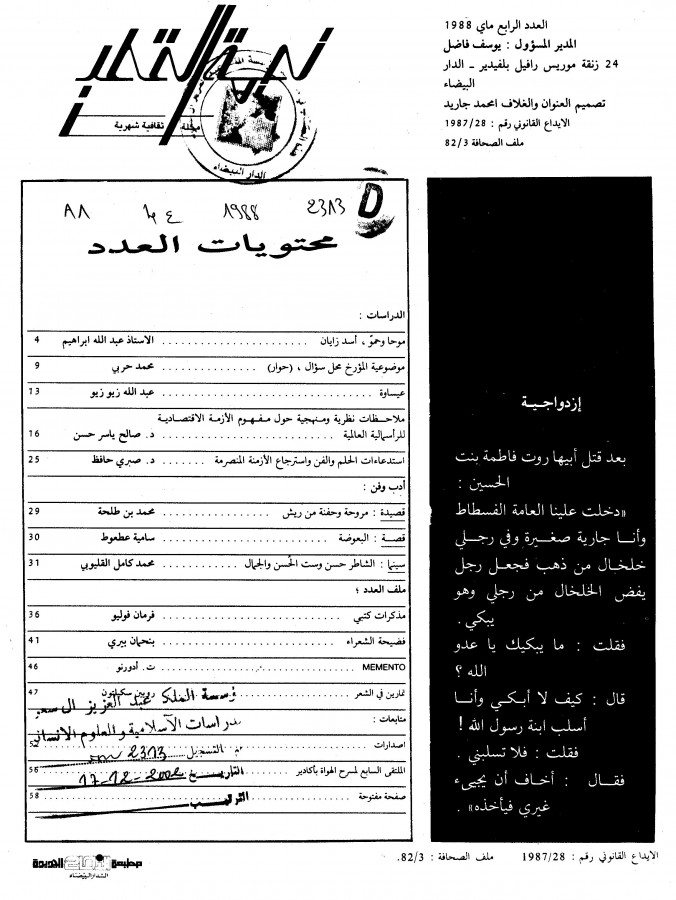 العدد الرابع ماي 1988
المدير المسؤول : يوسف فاضل
24 زنقة موريس رافيل بلفيدير - الدار
البيضاء
تصميم العنوان والغلاف امحمد جاريد
الايداع القانوني رقم : 1987/28
ملف الصحافة 82/3
مجلة ثقافية شهرية
الدار البيضاء
1988 2313 D
محتويات العدد
الدراسات :
موحا وحمّو ، أسد زايان ........ الاستاذ عبد الله ابراهيم 4
موضوعية المؤرخ محل سؤال ، (حوار) ........ محمد حربي 9
عيساوة ........ عبد الله زيو زيو 13
ملاحظات نظرية ومنهجية حول مفهوم الأزمة الاقتصادية
للرأسمالية العالمية ........ د. صالح ياسر حسن 16
استدعاءات الحلم والفن واسترجاع الأزمنة المنصرمة ........ د. صبري حافظ 25
أدب وفن :
قصيدة : مروحة وحفنة من ريش ........ محمد بن طلحة 29
قصة : البعوضة ........ سامية عطعوط 30
سينما : الشاطر حسن وست الحُسن والجمال ........ محمد كامل القليوبي 31
ملف العدد ؛
مذكرات كتبي ........ فرمان فوليو 36
فضيحة الشعراء ........ بنحمان بيري 41
MEMENTO ........ ت. أدورنو 46
تمارين في الشعر ........ روبين سكيلتون 47
متابعات :
اصدارات ........ 52
الملتقى السابع لمسرح الهواة بأكادير 56
صفحة مفتوحة ........ 58
مؤسسة الملك عبد العزيز آل سعود
للدراسات الاسلامية والعلوم الانسانية
رقم التسجيل 2313
التاريخ 17-12-2002
الترتيب
إزدواجية
بعد قتل أبيها روت فاطمة بنت
الحسين :
«دخلت علينا العامة الفسطاط
وأنا جارية صغيرة وفي رجلي
خلخال من ذهب فجعل رجل
يفض الخلخال من رجلي وهو
يبكي .
فقلت : ما يبكيك يا عدو
الله ؟
قال : كيف لا أبكي وأنا
أسلب ابنة رسول الله !
فقلت : فلا تسلبني .
فقال : أخاف أن يجيىء
غيري فيأخذه» .
الايداع القانوني رقم : 1987/28 ملف الصحافة : 82/3.
مطبعة النجاح الجديدة
الدار البيضاء